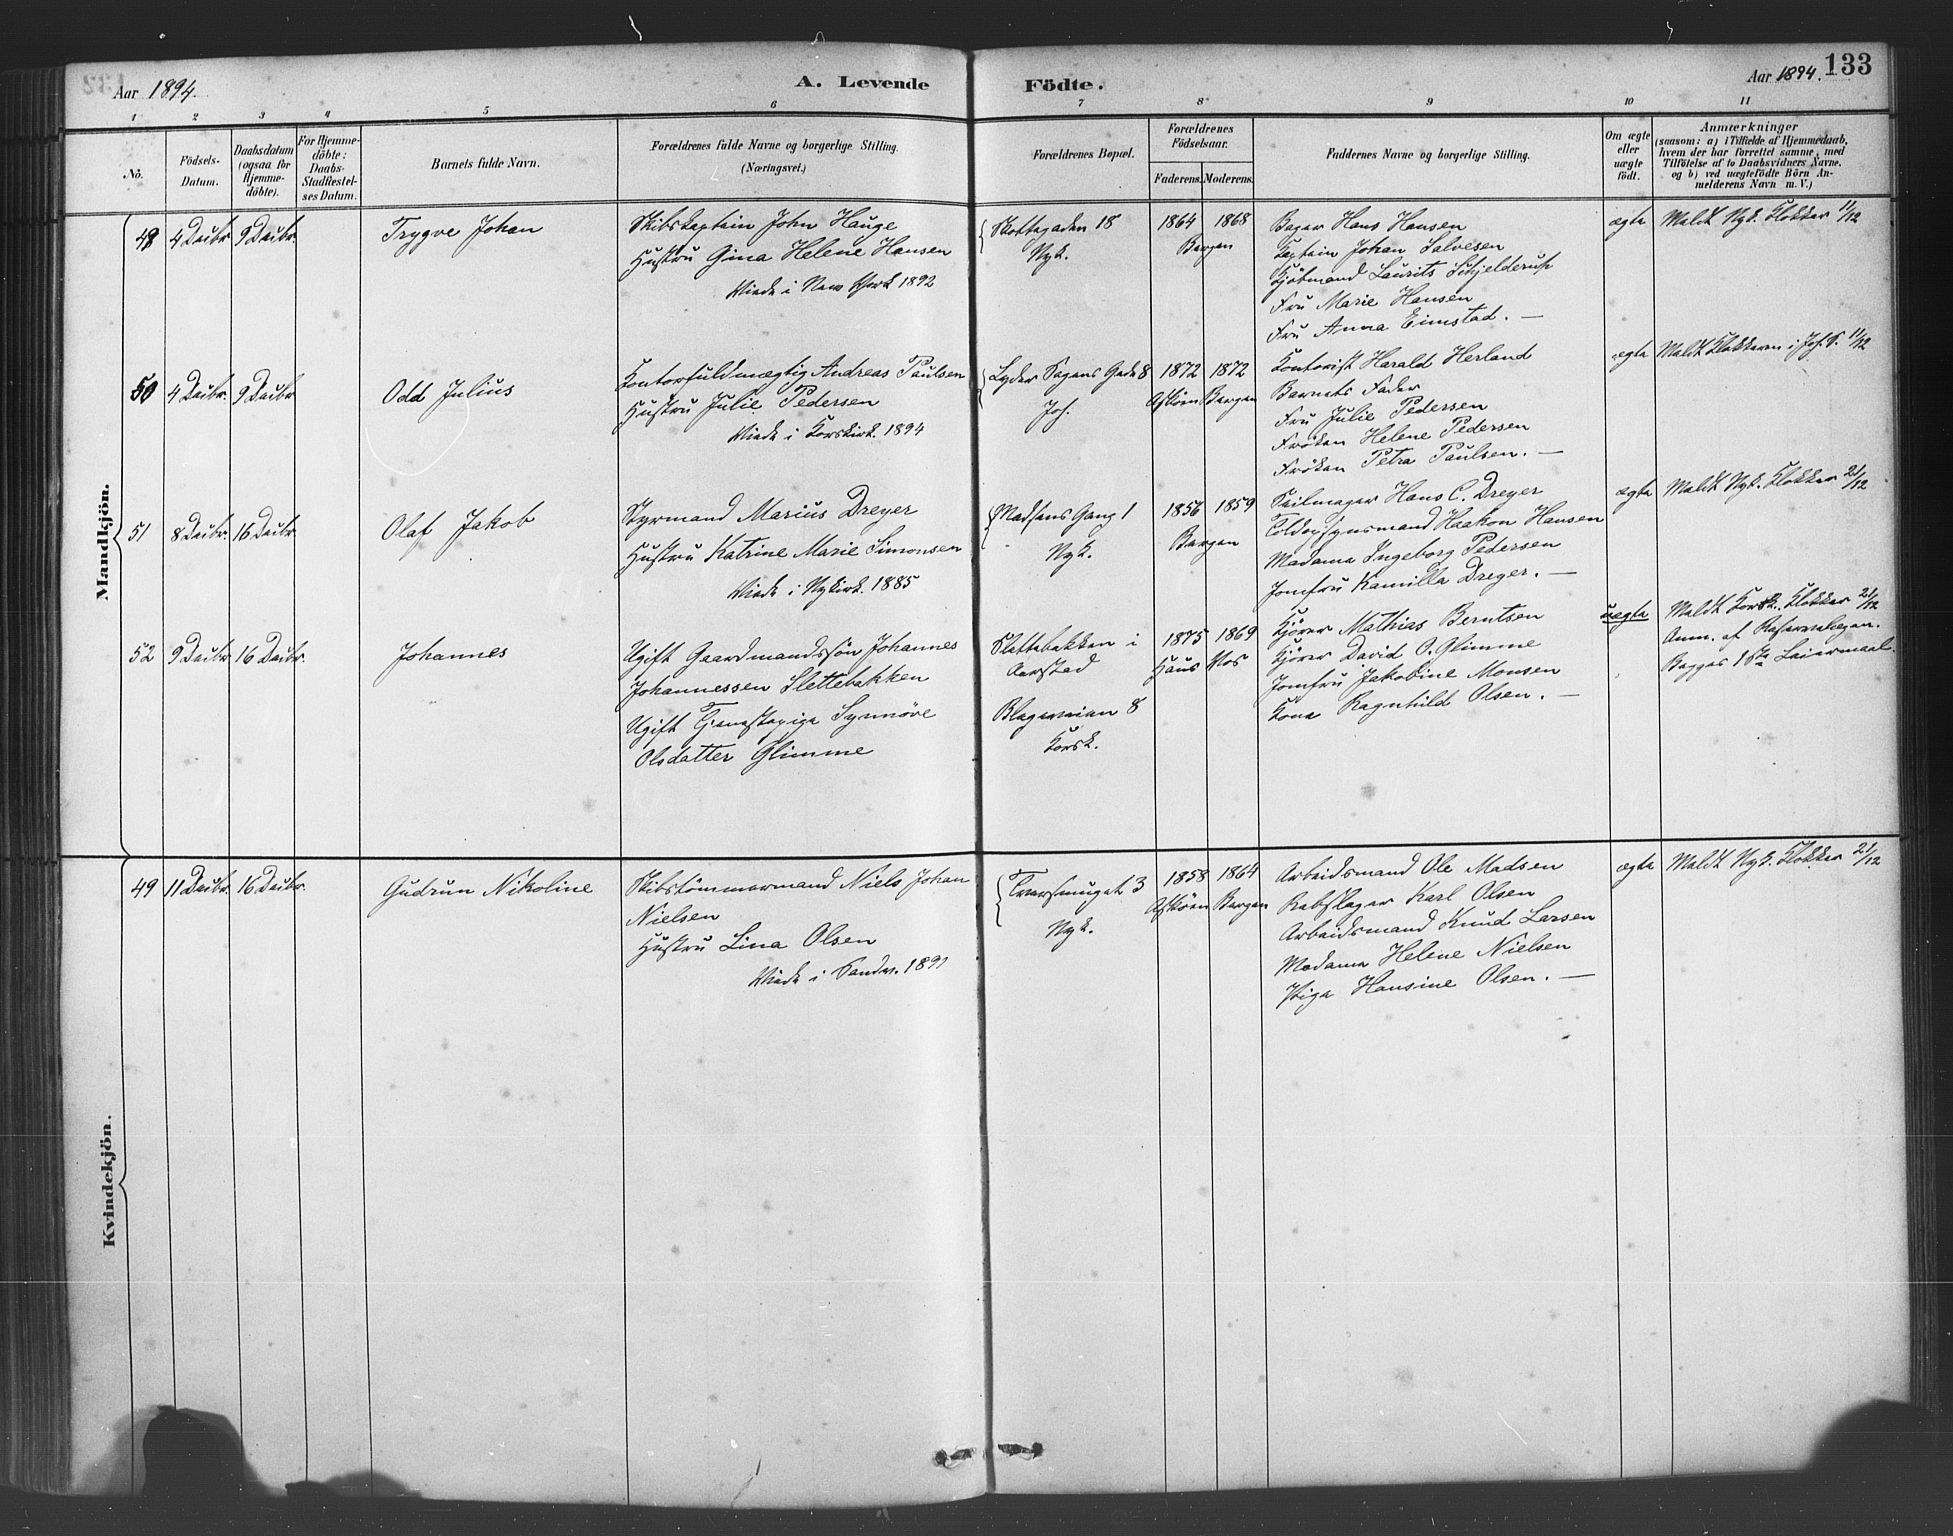 Aar 1894.
A. Levende Födte.
Aar 1894. 133
1 2 3 4 5 6 7 8 9 10 11
No.
Födsels-Datum.
Daabsdatum (ogsaa for Hjemme-döbte).
For Hjemme-döbte: Daabs-Stadfæstel-ses Datum.
Barnets fulde Navn.
Forældrenes fulde Navne og borgerlige Stilling.
(Næringsvei.)
Forældrenes Bopæl.
Forældrenes Födselsaar.
Faderens. Moderens.
Faddernes Navne og borgerlige Stilling.
Om ægte eller uægte födt.
Anmærkninger
(saasom: a) i Tilfælde af Hjemmedaab,
hvem der har forrettet samme, med
Tilföielse af to Daabsvidners Navne,
og b) ved uægtefödte Börn An-
melderens Navn m. V.)
Mandkjön.
49 4 Decbr. 9 Decbr. Trygve Johan
Skibskaptein John Hauge
Hustru Gina Helene Hansen
Viede i New York 1892
Skottegaden 18
Nyk.
1864 1868
Bergen
Bager Hans Hansen
Kaptein Johan Salvesen
Kjøbmand Laurits Schjelderup
Fru Marie Hansen
Fru Anna Eimstad. —
ægte
Meldt Nyk. Klokker 11/12
50 4 Decbr. 9 Decbr Odd Julius
Kontorfuldmægtig Andreas Paulsen
Hustru Julie Pedersen
Viede i Korskirk. 1894
Lyder Sagens Gade 8
Joh.
1872 1872
Askøen Bergen
Kontorist Harald Herland
Barnets Fader
Fru Julie Pedersen
Frøken Helene Pedersen
Frøken Petra Paulsen. —
ægte
Meldt Klokkeren i Joh. S. 11/12
51 8 Decbr. 16 Decbr. Olaf Jakob
Styrmand Marius Dreyer
Hustru Katrine Marie Simonsen
Viede i Nykirk. 1885
Madsens Gang 1
Nyk.
1856 1859
Bergen
Seilmager Hans C. Dreyer
Haakon Hansen
Madame Ingeborg Pedersen
Jomfru Kamilla Dreyer. —
ægte
Meldt Nyk. Klokker 21/12
52 9 Decbr 16 Decbr. Johannes
Ugift Gaardmandssøn Johannes
Johannessen Slettebakken
Ugift Tjenestepige Synnøve
Olsdatter Glimme
Slettebakken i
Aarstad
8
Korsk.
1875 1869
Haus Vos
Kjører Mathias Berntsen
Kjører David O. Glimme
Jomfru Jakobine Monsen
Kone Ragnhild Olsen. —
uægte
Meldt Korsk. Klokker 21/12
Anm. af
Begges 1ste Leiermaal.
Kvindekjön.
49 11 Decbr. 16 Decbr. Gudrun Nikoline
Skibstømmermand Niels Johan
Nielsen
Hustru Lina Olsen
Viede i Sandv. 1891
Tverrsmuget 3
Nyk.
1858 1864
Askøen Bergen
Arbeidsmand Ole Madsen
Rebslager Karl Olsen
Arbeidsmand Knud Larsen
Madame Helene Nielsen
Pige Hansine Olsen. —
ægte
Meldt Nyk. Klokker 21/12